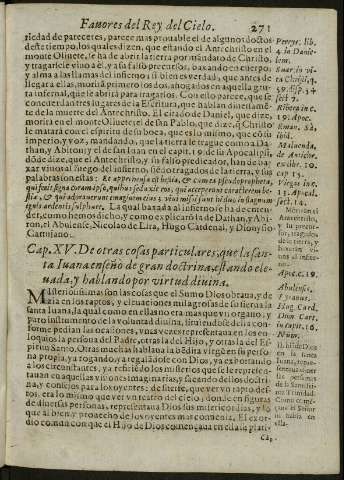 Fauores del Rey del Cielo. 271
riedad de pareceres, parece mas prouable el de algunos doctos
deste tiempo, los quales dizen, que estando el Antechristo en el
monte Oliuete, le ha de abrir la tierra por mandado de Christo,
y tragarsele viuo a el, y a su falso precursor, baxando en cuerpo
y alma a las llamas del infierno: si bien es verdad, que antes de
llegar a ellas, morirà primero los dos, ahogados en aquella gru-
ta infernal, que le abrirà para tragarlos. Con este parecer, que
concierdan tres lugares de la Escritura, que hablan
te de la muerte del Antechristo. El citado de Daniel, que dize,
morirà en el monte Oliuete: el de san Pablo, que dize, q̃ Christo
le matarà con el espiritu de su boca, que es lo mismo, que cõ su
imperio, y voz, mandando, que la tierra le trague como a Da-
than, y Abiron: y el de san Iuan en el capit. 19. de su Apocalip.
dõde dize, que el Antechristo, y su falso predicador, han de ba-
xar viuos al fuego del infierno, sẽdo tragados de la tierra, y sus
palabras son estas: Et apprehensa est bestia, & cum ea pseudopropheta,
qui fecit signa coram ipso, quibus seduxit eos, qui acceperunt caracterem bes-
tiæ, & qui adorauerunt imaginem eius: viui missi sunt hi duo in stagnum
ignis ardentis sulphure. La qual baxada al infierno se ha de enten-
der, como hemos dicho, y como explicarõ la de Dathan, y Abi-
ron, el Abulense, Nicolao de Lira, Hugo Cardenal, y Dionysio
Cartujano.
Cap. XV. De otras cosas particulares, que la san-
ta Iuana enseñò de gran doctrina, estando ele-
uada, y hablando por virtud diuina.
Marauillosissimas son las cosas que el Sumo Dios obraua, y de
zia en los raptos, y eleuaciones milagrosas de su sierua la
santa Iuana, la qual como en ellos no era mas que vn organo, y
puro instrumento de la voluntad diuina, siruiendole de la con-
forme pedian las ocasiones, vnas vezes representaua en los co-
loquios la persona del Padre, otras la del Hijo, y otras la del Es-
piritu Santo. Otras muchas hablaua la bẽdita virgẽ en su perso-
na propia, ya rogando, ya regalãdose con Dios, ya exportando
a los circunstantes, ya refiriẽdo los misterios que se le represen-
tauan en aquellas visiones imaginarias, y sacando dellos dotri-
na, y consejos para los oyentes: de suerte, que ver vn rapto des-
tos, era lo mismo que ver vn teatro del cielo, donde en figuras
de diuersas personas, representaua Dios sus misericordias, y lo
que al bien y prouecho de los oyentes mas conuenia. El exor-
dio comun con que el Hijo de Dios començaua en ellas la plati-
ca,
Pereyr. lib.
4. in Danie-
lem.
Suar. in vi-
ta Christi, 4.
59. disp. 54
sect. 7.
Ribera in c.
19. Apoc.
Eman. Sà,
ibid.
Maluenda,
de Antichr.
cap. 15.
Viegas in c.
13. Apocal.
sect. 14.
Moriràn el
Antechristo,
y su precur-
sor, tragado
viuos al in-
fierno.
Apoc. c. 19.
Abulense,
Lyranus,
Hug. Card.
Dion. Cart.
in capit. 16.
Num.